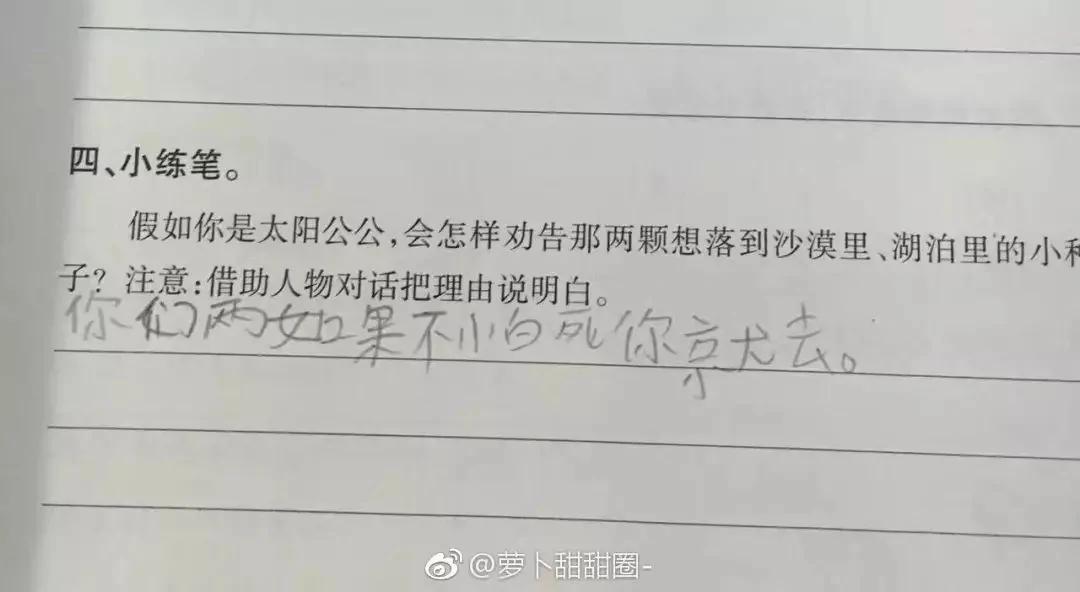 四、小练笔。
假如你是太阳公公,会怎样劝告那两颗想落到沙漠里、湖泊里的小种
子?注意:借助人物对话把理由说明白。
你们两如果不小白死你京尤去。
@萝卜甜甜圈-